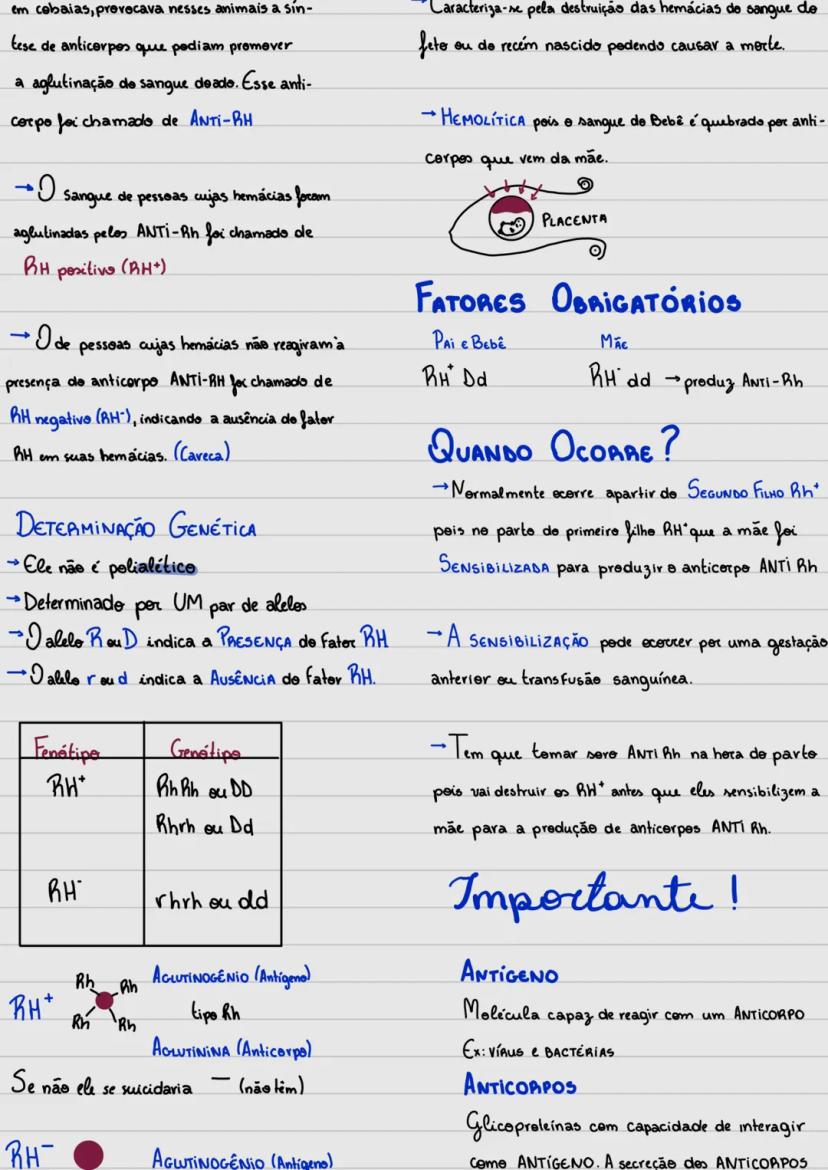 em cobaias, provocava nesses animais a sín-
tese de anticorpos que podiam promover
a aglutinação do sangue doado. Esse anti-
corpo foi chamado de ANTI-RH
→ O sangue de pessoas cujas hemácias foram
aglutinadas pelos ANTI-Rh foi chamado de
RH positivo (RH⁺)
→ O de pessoas cujas hemácias não reagiram à
presença do anticorpo ANTI-RH foi chamado de
RH negativo (RH⁻), indicando a ausência do fator
RH em suas hemácias. (Careca)
DETERMINAÇÃO GENÉTICA
→ Ele não é polialético
→ Determinado por UM par de alelos
→ O alelo R ou D indica a PRESENÇA do Fator RH
→ O alelo r ou d indica a AUSÊNCIA do Fator RH.
Fenótipo Genótipo
RH⁺ RhRh ou DD
Rhrh ou Dd
RH⁻ rhrh ou dd
RH⁺ Rh Rh Rh Rh AGLUTINOGÊNIO (Antígeno)
tipo Rh
AGLUTININA (Anticorpo)
Se não ele se suicidaria — (não têm)
RH⁻ AGLUTINOGÊNIO (Antígeno)
→ Caracteriza-se pela destruição das hemácias do sangue do
feto ou do recém nascido podendo causar a morte.
→ HEMOLÍTICA pois o sangue do Bebê é quebrado por anti-
corpos que vem da mãe.
PLACENTA
FATORES OBRIGATÓRIOS
PAI E BEBÊ MÃE
RH⁺ Dd RH⁻ dd → produz ANTI-Rh
QUANDO OCORRE?
→ Normalmente ocorre apartir do SEGUNDO FILHO Rh⁺
pois no parto do primeiro filho RH⁺ que a mãe foi
SENSIBILIZADA para produzir o anticorpo ANTI Rh
→ A SENSIBILIZAÇÃO pode ocorrer por uma gestação
anterior ou transfusão sanguínea.
→ Tem que tomar soro ANTI Rh na hora do parto
pois vai destruir os RH⁺ antes que eles sensibilizem a
mãe para a produção de anticorpos ANTI Rh.
Importante!
ANTÍGENO
Molécula capaz de reagir com um ANTICORPO
Ex: VÍRUS E BACTÉRIAS
ANTICORPOS
Glicoproteínas com capacidade de interagir
como ANTÍGENO. A secreção dos ANTICORPOS